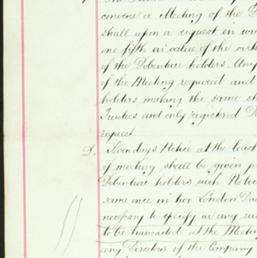 convene a Meeting of the D
shall upon a request in wri
one fifth in value of the
of the Debenture holders. Any
of the Meeting required and
holders making the same sh
Trustees and only registered D
request
2. Seven days Notice at the least
of meeting shall be given
Debenture holders such Notice
same once in two London Dai
necessary to specify in any such
to be transacted at the Meeting
any Directors of the Company